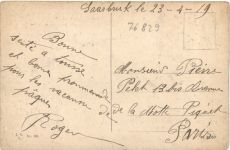 Saarbruck le 23-4-19
76829
Bonne
santé a tous
et bonne promenade
pour les vacances de
pâques
Roger
Monsieur Poëire
Petit 13 bis Avenue
de la Motte Piquet
Paris